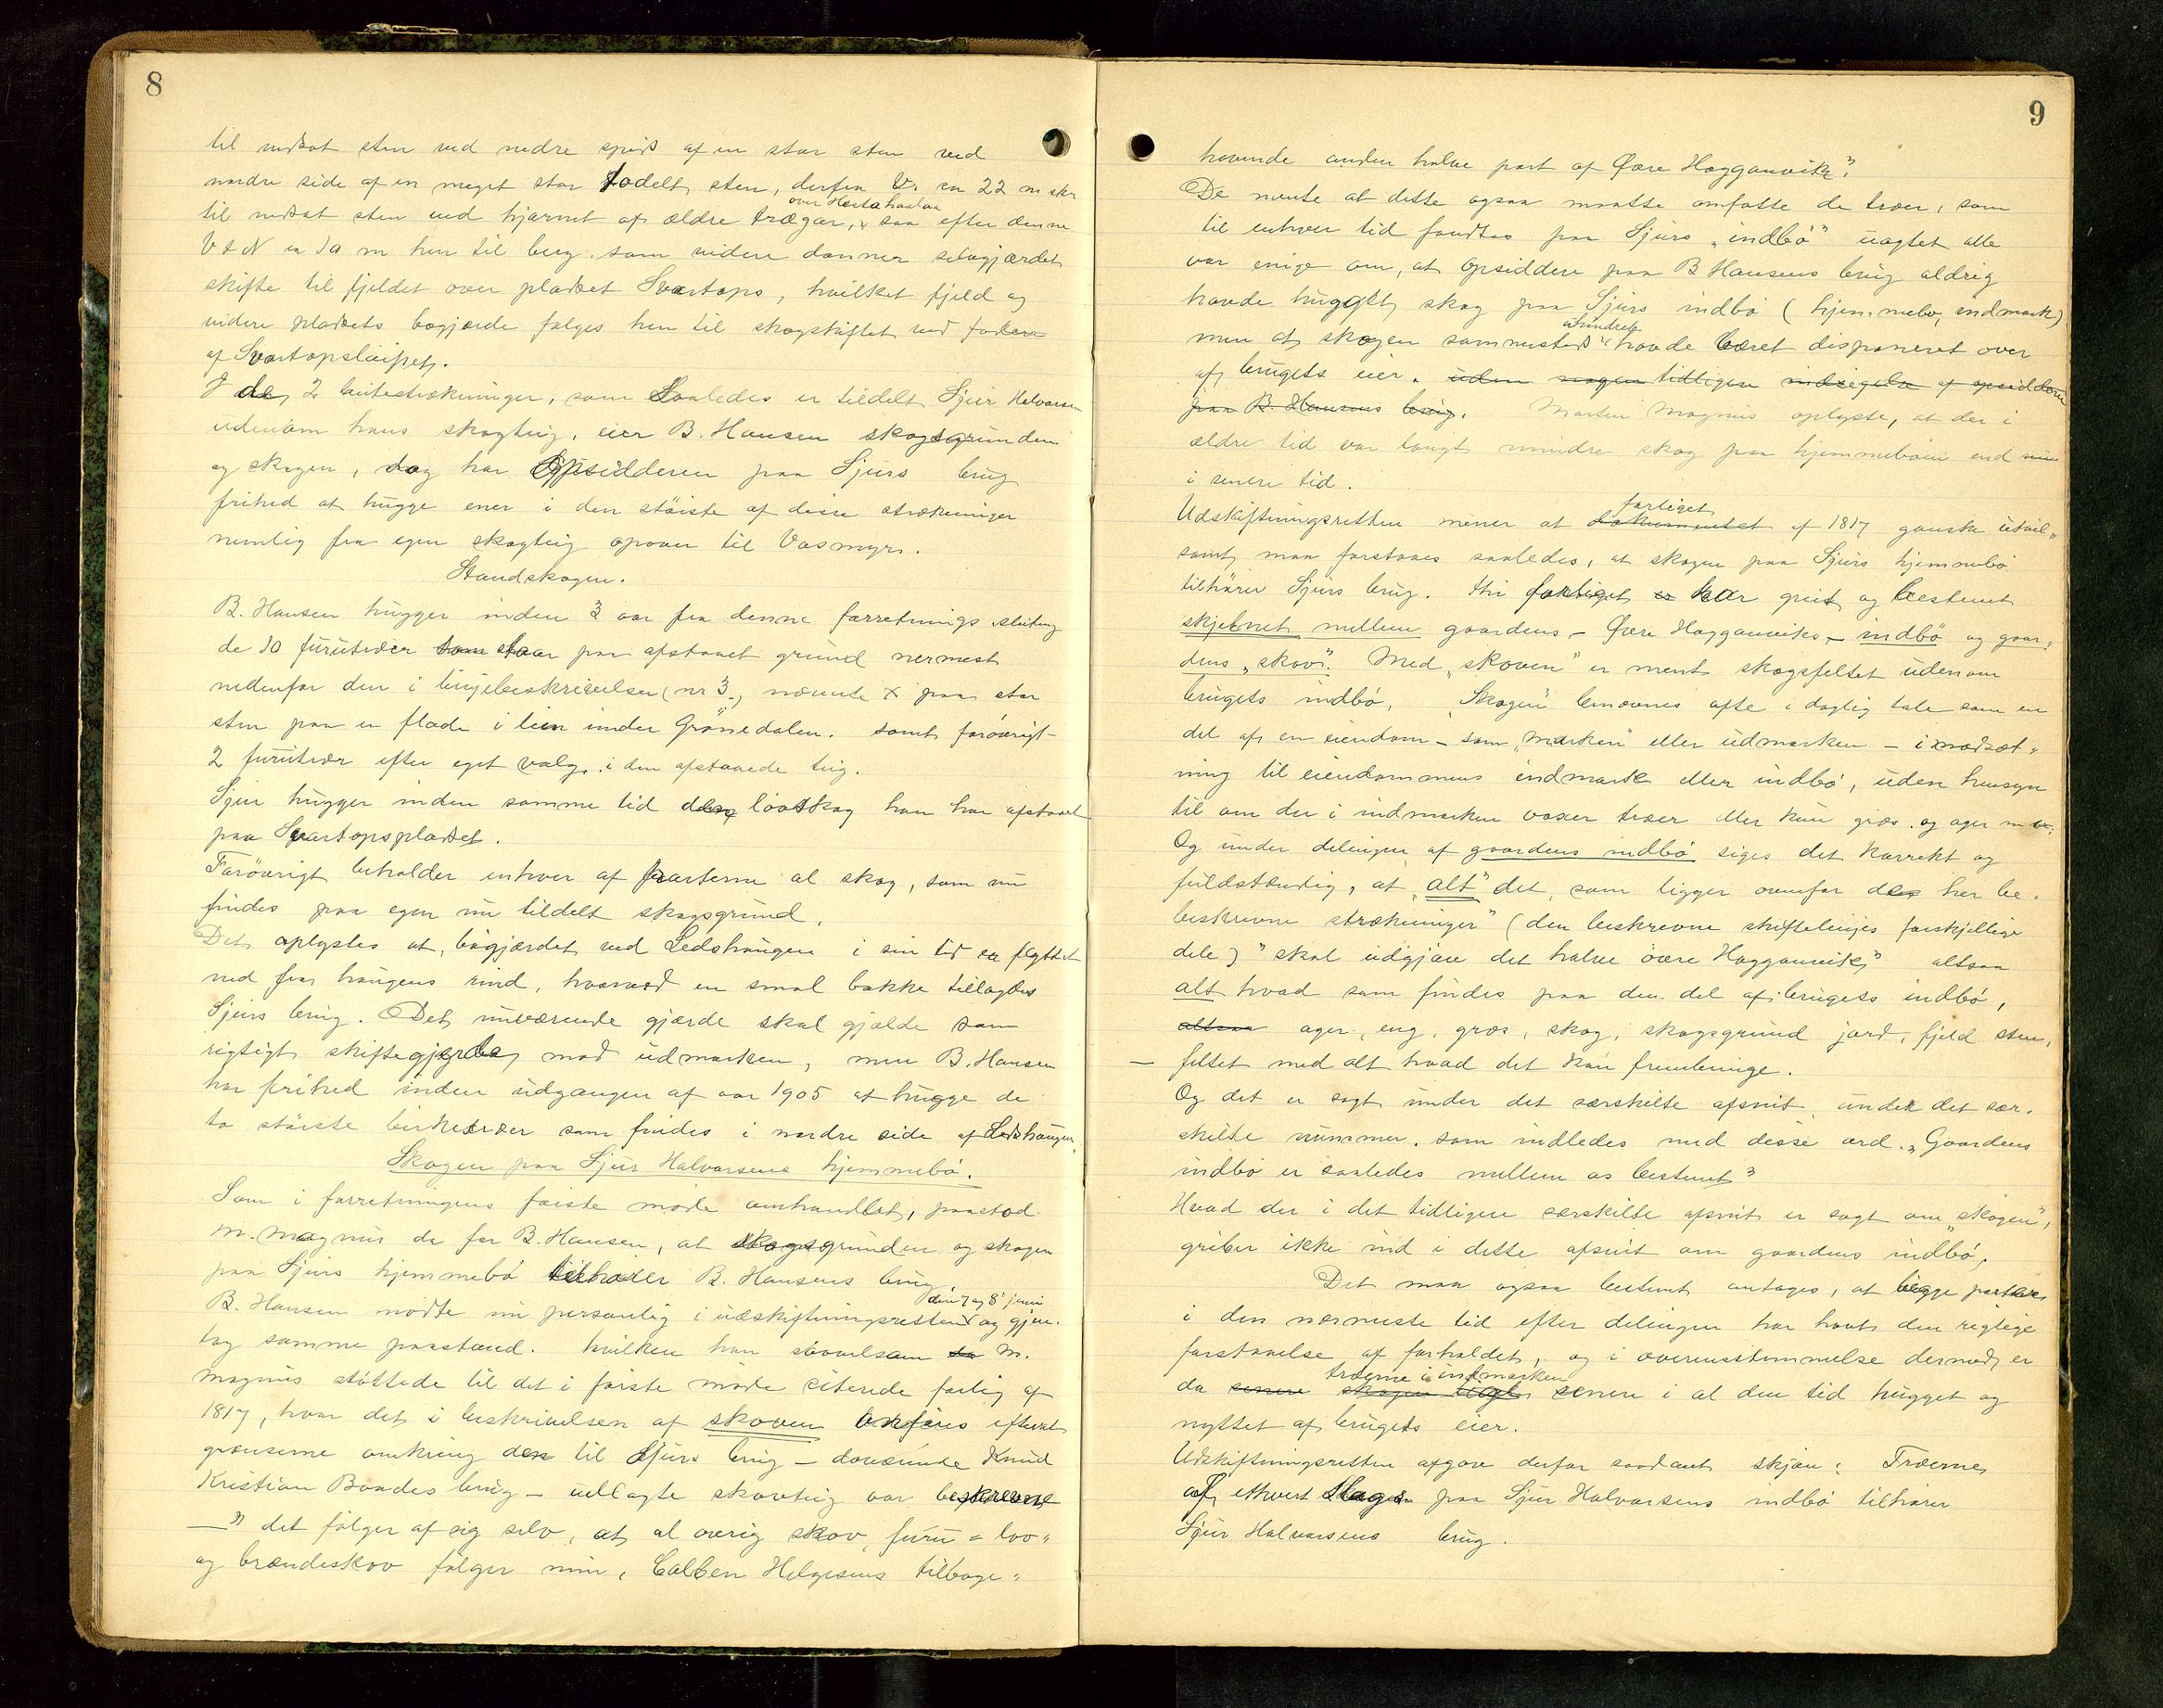 8
til nedsat sten ved nedre spids af en stor sten ved
nordre side af en meget stor todelt sten, derfra V. ca 22 m sker
over Hestahaalaa
til nedsat sten ved hjørnet af ældre trægar, saa efter denne
V t N ca 10 m hen til berg som videre danner selvgjærdet
skifte til fjeldet over pladset Svartops, hvilket fjeld og
videre pladsets bøgjærde følges hen til skogskiftet ved
af Svartopsløipet.
I de 2 beitestrækninger, som saaledes er tildelt Sjur Halvorsen
udenom hans skogteig, eier B. Hansen skogsgrunden
og skogen, dog har Opsidderen paa Sjurs brug
frihed at hugge ener i den støiste af disse strækninger
nemlig fra egen skogteig opover til Vasmyr.
Standskogen.
B. Hansen hugger inden 3 aar fra denne forretnings slutning
de 10 furutrær som staar paa afstaaet grund nærmest
nedenfor den i linjebeskrivelsen (nr 3.) nævnte X paa stor
sten paa en flade i lien under Grønedalen. samt forøvrigt
2 furutrær efter eget valg i den afstaaede teig.
Sjur hugger inden samme tid den løvskog han har afstaaet
paa Svartopspladset.
Forøvrigt beholder enhver af parterne al skog, som nu
findes paa egen nu tildelt skogsgrund.
Det oplystes at bøgjærdet ved Ledshaugen i sin tid er flyttet
ned fra haugens rind, hvorved en smal bakke tillagdes
Sjurs brug. Det nuværende gjærde skal gjælde som
rigtigt skiftegjærde mod udmarken, men B. Hansen
har frihed inden udgangen af aar 1905 at hugge de
to støiste birketrær som findes i nordre side af Ledshaugen.
Skogen paa Sjur Halvorsens hjemmebø.
Som i forretningens første møde omhandlet, paastod
M. Magnus da for B. Hansen, at skogsgrunden og skogen
paa Sjurs hjemmebø tilhører B. Hansens brug.
den 7 og 8' juni
B. Hansen mødte nu personlig i udskiftningsretten og gjen-
tog samme paastand. hvilken han saavelsom M.
Magnus støttede til det i første møde citerede forlig af
1817, hvor det i beskrivelsen af skoven anføres efterat
grænserne omkring den til Sjurs brug – daværende Knud
Kristian Baades brug – udlagte skovteig var beskrevne
—" det følger af sig selv, at al øvrig skov, furu = løv=
og brændeskov følger min, Colben Helgesens tilbage=
9
havende anden halve part af Øvre Hoggamvik".
De mente at dette ogsaa maatte omfatte de trær, som
til enhver tid fandtes paa Sjurs „indbø" uagtet alle
var enige om, at Opsiddere paa B Hansens brug aldrig
havde hugget skog paa Sjurs indbø (hjemmebø, indmark)
uhindret
men at skogen sammesteds havde været disponeret over
af brugets eier. uden nogen tidligere indsigelse af opsiddere
paa B. Hansens brug. Martin Magnus oplyste, at der i
ældre tid var langt mindre skog paa hjemmebøen end nu
i senere tid.
forliget
Udskiftningsretten mener at dokumentet af 1817 ganske utvil=
somt maa forstaaes saaledes, at skogen paa Sjurs hjemmebø
tilhører Sjurs brug. thi forliget er har greit og bestemt
skjelnet mellem gaardens – Øvre Hoggamviks – indbø og gaar=
dens „skov". Med „skoven" er ment skogsfeltet udenom
brugets indbø. „Skogen" benævnes ofte i daglig tale som en
del af en eiendom – som „marken" eller udmarken – i modsæt=
ning til eiendommens indmark eller indbø, uden hensyn
til om der i indmarken voxer trær eller kun græs og ager m v.
Og under delingen af gaardens indbø siges det korrekt og
fuldstændig, at „alt" det, som ligger ovenfor des her be-
beskrevne strækninger" (den beskrevne skiftelinjes forskjellige
dele) " skal udgjøre det halve øvre Hoggamvik" altsaa
alt hvad som findes paa den del af brugets indbø,
altsaa ager, eng, græs, skog, skogsgrund jord, fjeld sten,
– feltet med alt hvad det kan frembringe.
Og det er sagt under det særskilte afsnit, under det sær-
skilte nummer, som indledes med disse ord „Gaardens
indbø er saaledes mellem os bestemt"
Hvad der i det tidligere særskilte afsnit er sagt om „skogen",
griber ikke ind i dette afsnit om gaardens indbø.
Det maa ogsaa bestemt antages, at begge parter
i den nærmeste tid efter delingen har havt den rigtige
forstaaelse af forholdet, og i overensstemmelse dermed er
trærne i indmarken
da senere skogen senere i al den tid hugget og
nyttet af brugets eier.
Udskiftningsretten afgav derfor saadant skjøn: Trærne
af ethvert slags paa Sjur Halvorsens indbø tilhører
Sjur Halvorsens brug.